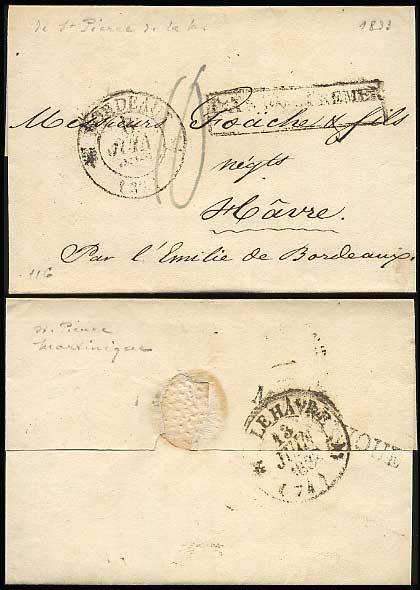 de St Pierre de la
1833
BORDEAUX
JUIN
(32)
10
PAYS D'OUTREMER
Messieurs Foache & fils
négts
Hâvre.
Par l'Emilie de Bordeaux.
116
St. Pierre
Martinique
LE HÂVRE
13
JUIN
(74)